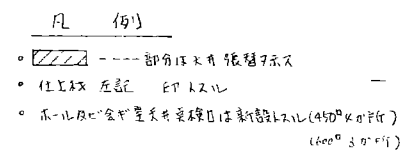 凡 例
• ---- 部分は天井張替ヲ示ス
• 仕上材 左記 印トスル
• ホール及ビ会ギ室天井点検口は新設トスル(450□ 4か所)
(600□ 3か所)